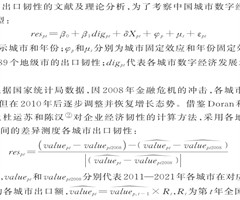 出口韧性的文献及理论分析,为了考察中国城市数字经
res_pt = β_0 + β_1 dig_pt + δX_pt + φ_p + μ_t + ε_pt
示城市和年份;φ_p和μ_t分别为城市固定效应和年份固定效
89个地级市的出口韧性;dig_pt代表各城市数字经济发展
据国家统计局数据,因2008年金融危机的冲击,各城市
但在2010年后逐步调整并恢复增长态势。借鉴Doran和
杜运苏和陈汉②对企业经济韧性的计算方法,采用各地
间的差异测度各城市出口韧性:
res_pt = (value_pt − value_pt2008) − (value_pt − value_pt2008) / |(value_pt − value_pt2008)|
,value_pt和value_pt2008分别代表2011—2021年各城市在对应
各城市出口额,value_pt = value_p,t−1 × R_t,R_t为第t年全国